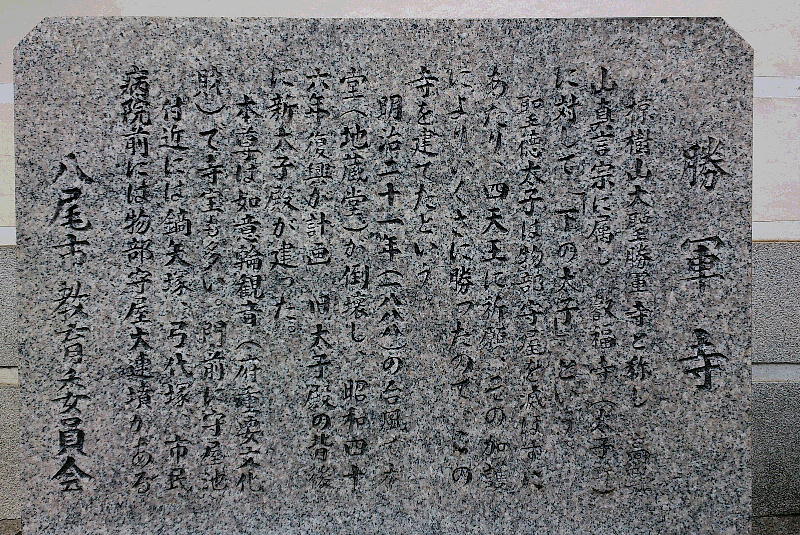 勝軍寺
椋樹山大聖勝軍寺と称し、高野
山真言宗に属し、叡福寺(太子町)
に対して「下の太子」という。
聖徳太子は物部守屋を滅ぼすに
あたり、四天王に祈願、その加護
によりいくさに勝ったので、この
寺を建てたという。
明治二十一年(一八八八)の台風で本
堂(地蔵堂)が倒壊し、昭和四十
六年復興が計画 旧太子殿の背後
に新太子殿が建った。
本尊は如意輪観音(府重要文化
財)で寺宝も多い。門前に守屋池
付近には鏑矢塚、弓代塚、市民
病院前には物部守屋大連墳がある
八尾市教育委員会